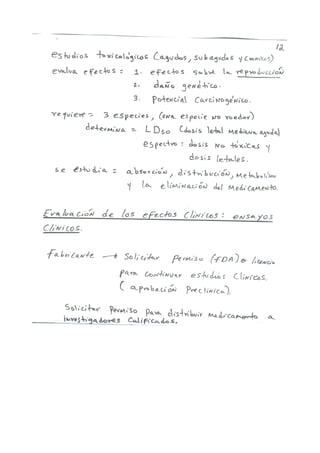 12
estudios toxicológicos (agudos, subagudos y cronicos)
evalua efectos : 1. efectos sobre la reproducción
2. daño genético.
3. potencial carcinogénico.
requiere = 3 especies, (una especie no roedor)
determina = LD50 (dosis letal mediana aguda)
espectro : dosis no tóxicas y
dosis letales.
se estudia = absorción, distribución, metabolismo
y la eliminación del medicamento.
Evaluación de los efectos clínicos : ensayos
clínicos.
Fabricante → Solicitar permiso (FDA) o licencia
para continuar estudios clínicos.
(aprobación preclínica).
Solicitar permiso para distribuir medicamento a
investigadores calificados.